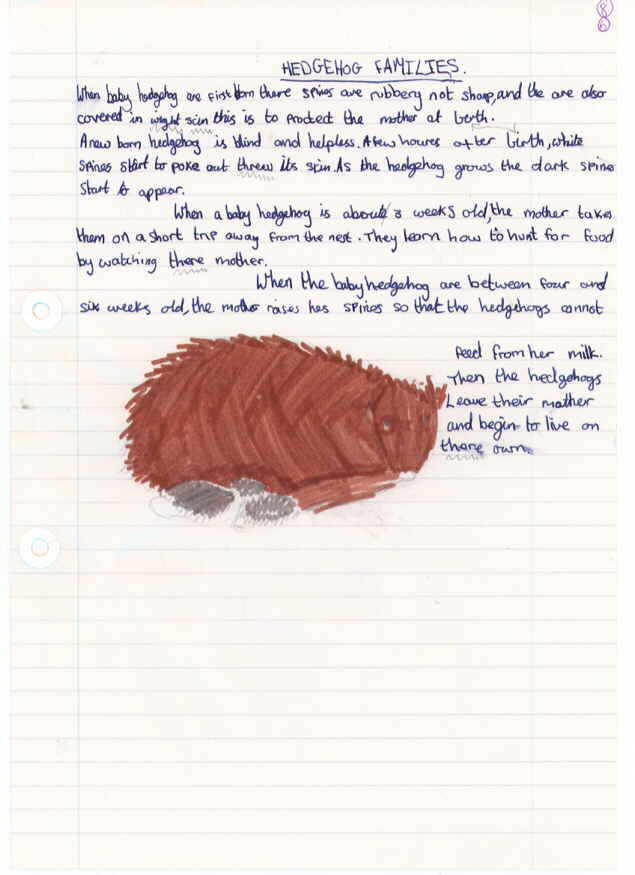 8
6
HEDGEHOG FAMILIES.
When baby hedgehog are first born there spines are rubbery not sharp, and the are also
covered in wight scin this is to protect the mother at berth.
A new born hedgehog is blind and helpless. A few houres after birth, white
spines start to poke out threw its skin. As the hedgehog grows the dark spines
start to appear.
When a baby hedgehog is about 3 weeks old, the mother takes
them on a short trip away from the nest. They learn how to hunt for food
by watching there mother.
When the baby hedgehog are between four and
six weeks old, the mother raises hes spines so that the hedgehogs cannot
feed from her milk.
Then the hedgehogs
Leave their mother
and begin to live on
there own.